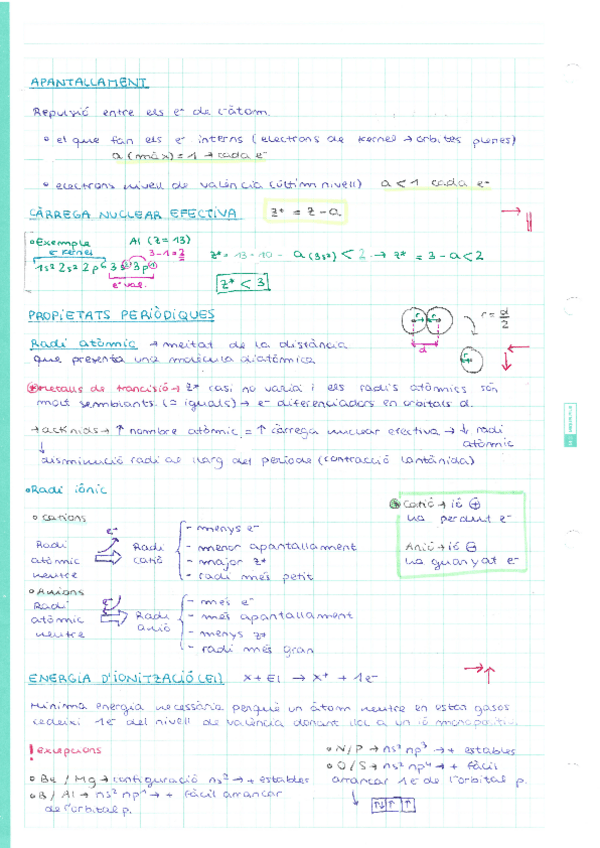 APANTALLAMENT
Repulsió entre els e⁻ de l'àtom.
• el que fan els e⁻ interns (electrons de kernel → òrbites plenes)
a (màx) = 1 → cada e⁻
• electrons nivell de valència (últim nivell) a < 1 cada e⁻
CÀRREGA NUCLEAR EFECTIVA Z* = Z - a
• Exemple Al (Z = 13)
e⁻ kernel 3-1=2
1s² 2s² 2p⁶ 3s² 3p¹ Z* = 13 - 10 - a (3s²) < 2 → Z* = 3 - a < 2
e⁻ val. Z* < 3
PROPIETATS PERIÒDIQUES
r r r = d/2
Radi atòmic → meitat de la distància
d
que presenta una molècula diatòmica
r
* Metalls de trancisió → Z* casi no varia i els radis atòmics són
molt semblants (≈ iguals) → e⁻ diferenciadors en orbitals d.
↑ nombre atòmic = ↑ càrrega nuclear efectiva → ↓ radi
atòmic
disminució radi al llarg del període (contracció lantànida)
• Radi iònic
• cations
e⁻
Radi
atòmic
neutre
Radi
catió
- menys e⁻
- menor apantallament
- major Z*
- radi més petit
Catió → ió ⊕
ha perdut e⁻
Anió → ió ⊖
ha guanyat e⁻
• Anions
e⁻
Radi
atòmic
neutre
Radi
anió
- més e⁻
- més apantallament
- menys Z*
- radi més gran
ENERGIA D'IONITZACIÓ (EI) X + EI → X⁺ + 1e⁻
Mínima energia necessària perquè un àtom neutre en estat gasós
cedeixi 1e⁻ del nivell de valència donant lloc a un ió monopositiu.
! excepcions
• Be / Mg → configuració ns² → + estables
• B / Al → ns² np¹ → + fàcil arrancar
de l'orbital p.
• N/P → ns² np³ → + estables
• O/S → ns² np⁴ → + fàcil
arrancar 1e⁻ de l'orbital p.
↑↓ ↑ ↑